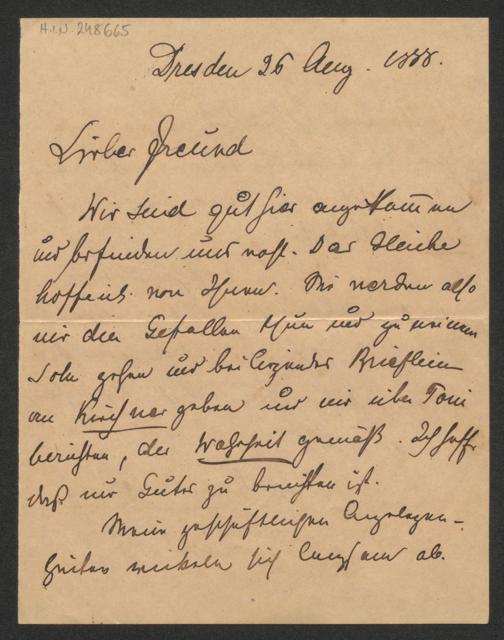 H.I.N. 248665
Dresden 26 Aug. 1888.
Lieber Freund
Wir sind gut hier angekommen
und befinden uns wohl. Das Gleiche
hoffent. von Ihnen. Sie werden also
mir den Gefallen thun und zu meinem
Sohn gehen und beiliegendes Brieflein
an Kirchner geben und mir über Toni
berichten, der Wahrheit gemäß. Ich hoffe
daß nur Gutes zu berichten ist.
Meine geschäftlichen Angelegen-
heiten wickeln sich langsam ab.